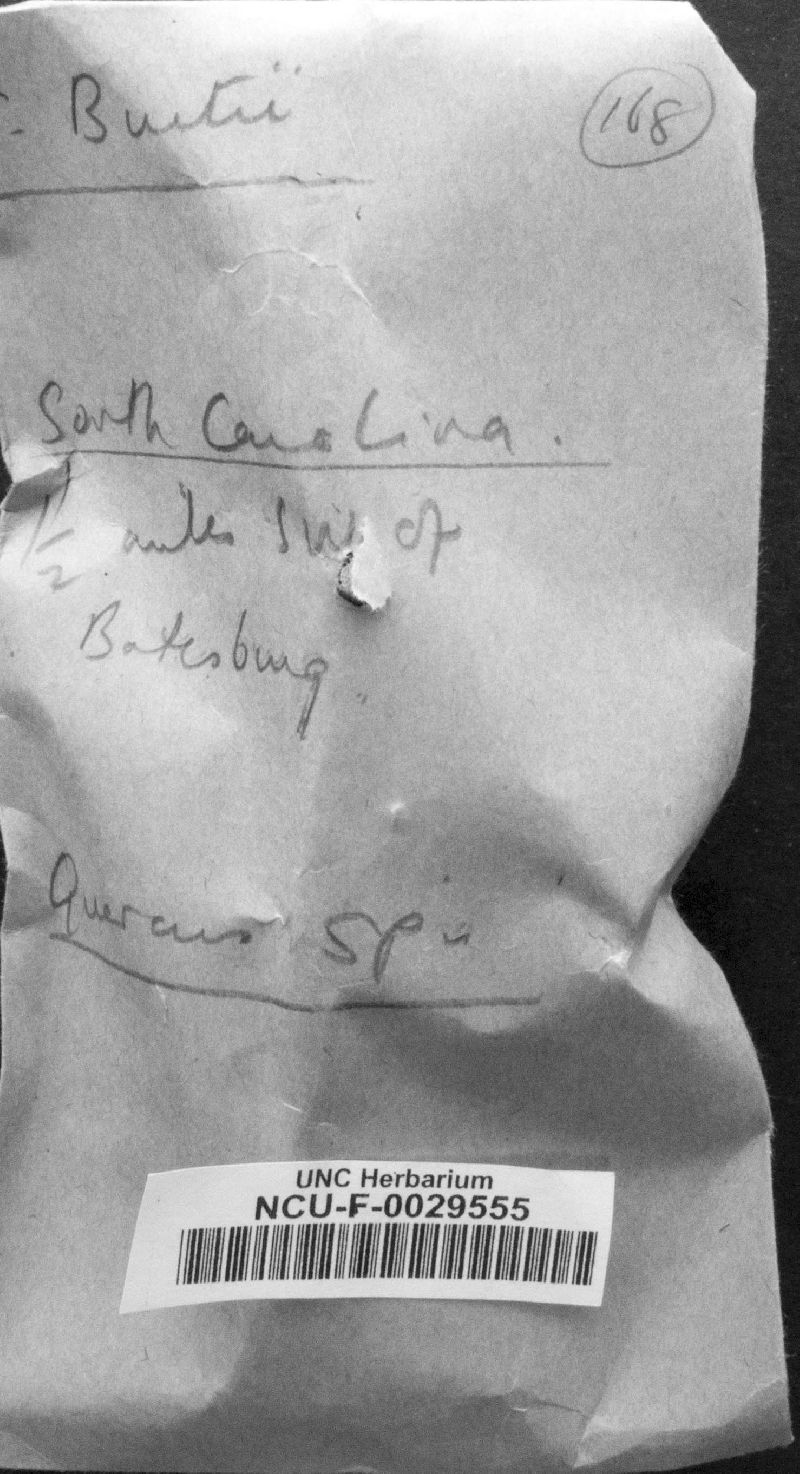 168
South Carolina.
1½ miles SW of
Batesburg.
Quercus sp.
UNC Herbarium
NCU-F-0029555